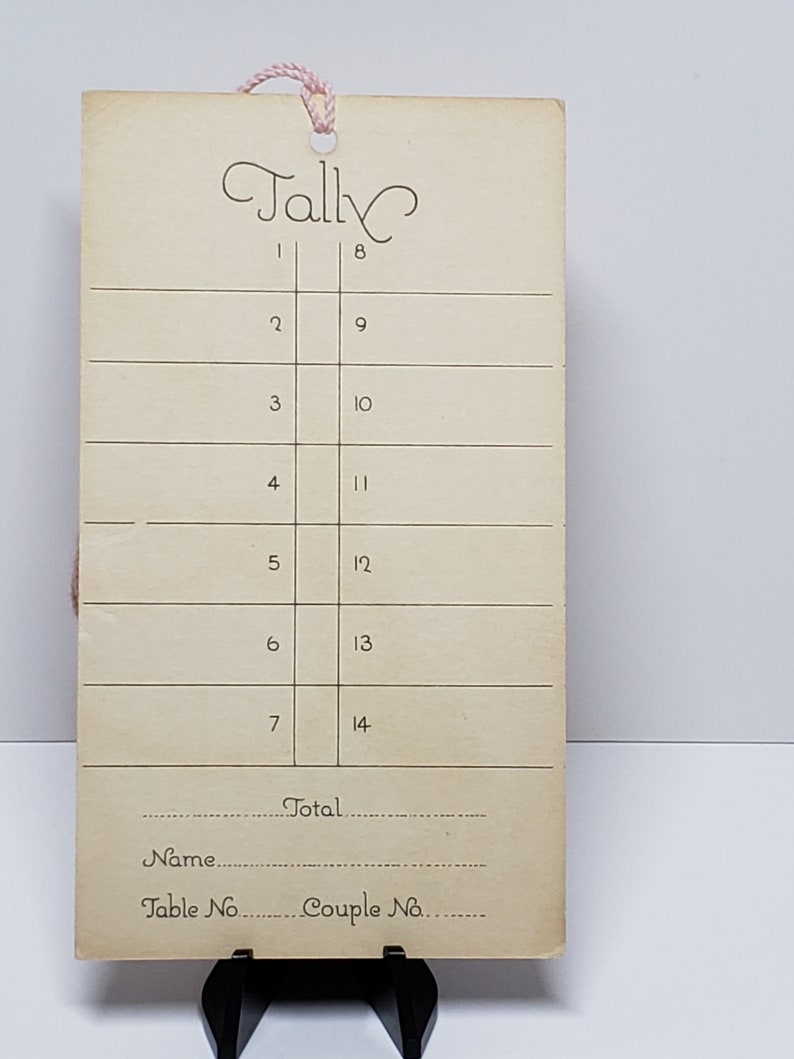 Tally
1 8
2 9
3 10
4 11
5 12
6 13
7 14
Total
Name
Table No. Couple No.